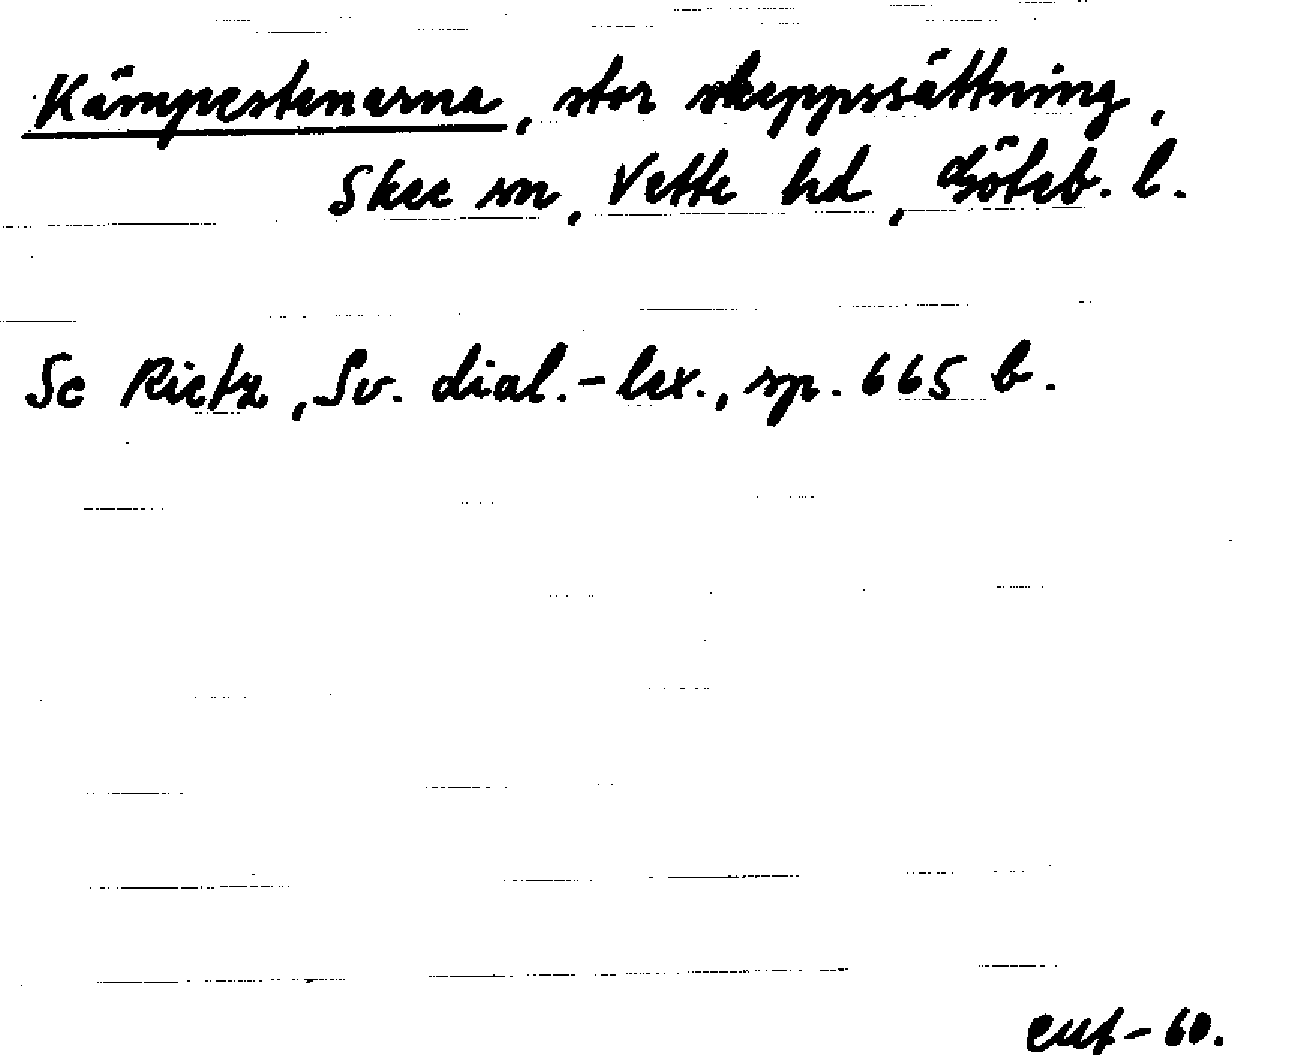 Kämpestenarna, stor skeppssättning,
Skee sn, Vette hd, Göteb. l.
Se Rietz, Sv. dial.-lex., sp. 665 b.